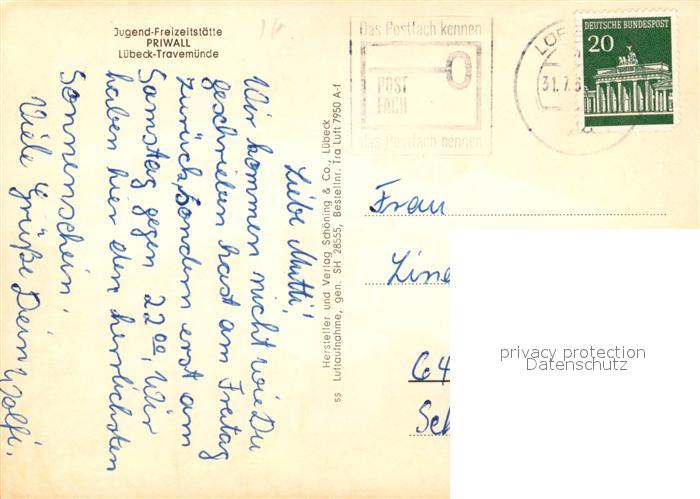 Jugend-Freizeitstätte
PRIWALL
Lübeck-Travemünde
Liebe Mutti!
Wir kommen nicht wie Du
geschrieben hast am Freitag
zurück, sondern erst am
Samstag gegen 22⁰⁰. Wir
haben hier den herrlichsten
Sonnenschein.
Viele Grüße Dein Wolfi.
Hersteller und Verlag Schöning & Co., Lübeck
ss Luftaufnahme, gen. SH 28555, Bestellnr. Tra Luft 7950 A-f
Das Postfach kennen
POST
FACH
das Postfach nennen
31.7.6
DEUTSCHE BUNDESPOST
20
Frau
64
Sch
privacy protection
Datenschutz